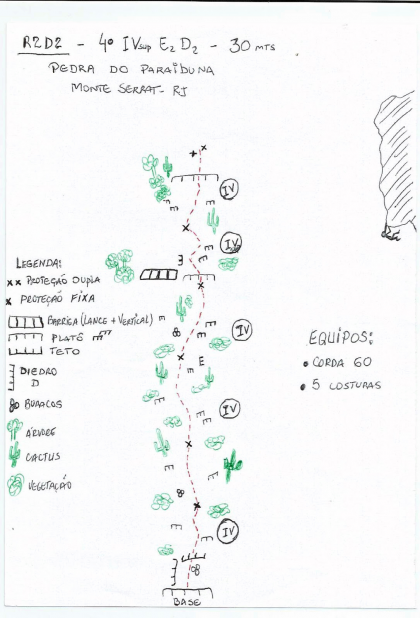 R2D2 - 4º IVsup E2 D2 - 30 mts
PEDRA DO PARAÍBUNA
MONTE SERRAT - RJ
IV
IV
LEGENDA:
xx PROTEÇÃO DUPLA
x PROTEÇÃO FIXA
BARRIGA (LANCE + VERTICAL)
PLATÔ
TETO
DIEDRO
D
BURACOS
ÁRVORE
CACTUS
VEGETAÇÃO
IV
IV
IV
BASE
EQUIPOS:
• CORDA 60
• 5 COSTURAS